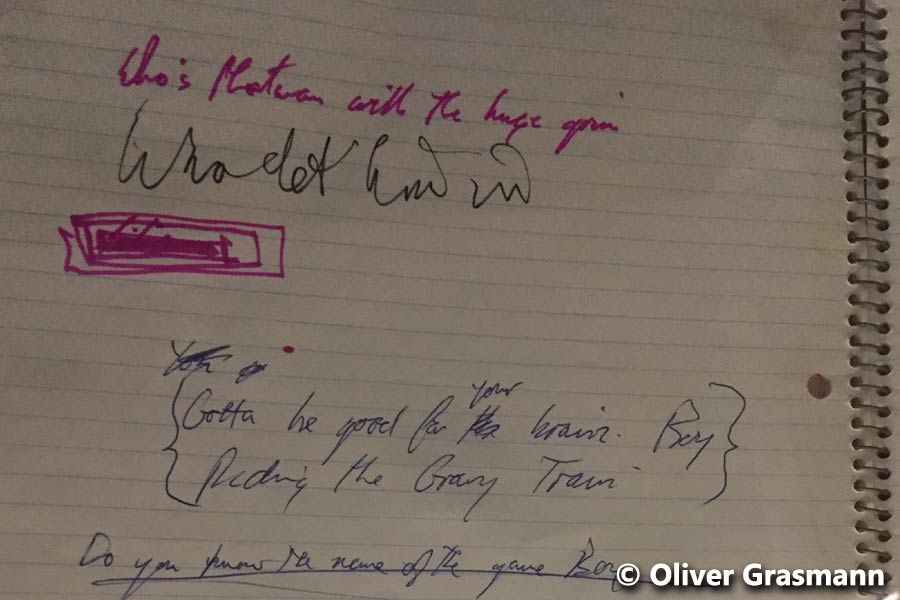 Who's with the huge grin
Who let him in
your
Gotta be good for brain. Boy
Riding the Gravy Train
Do you know the name of the game Boy
© Oliver Grasmann